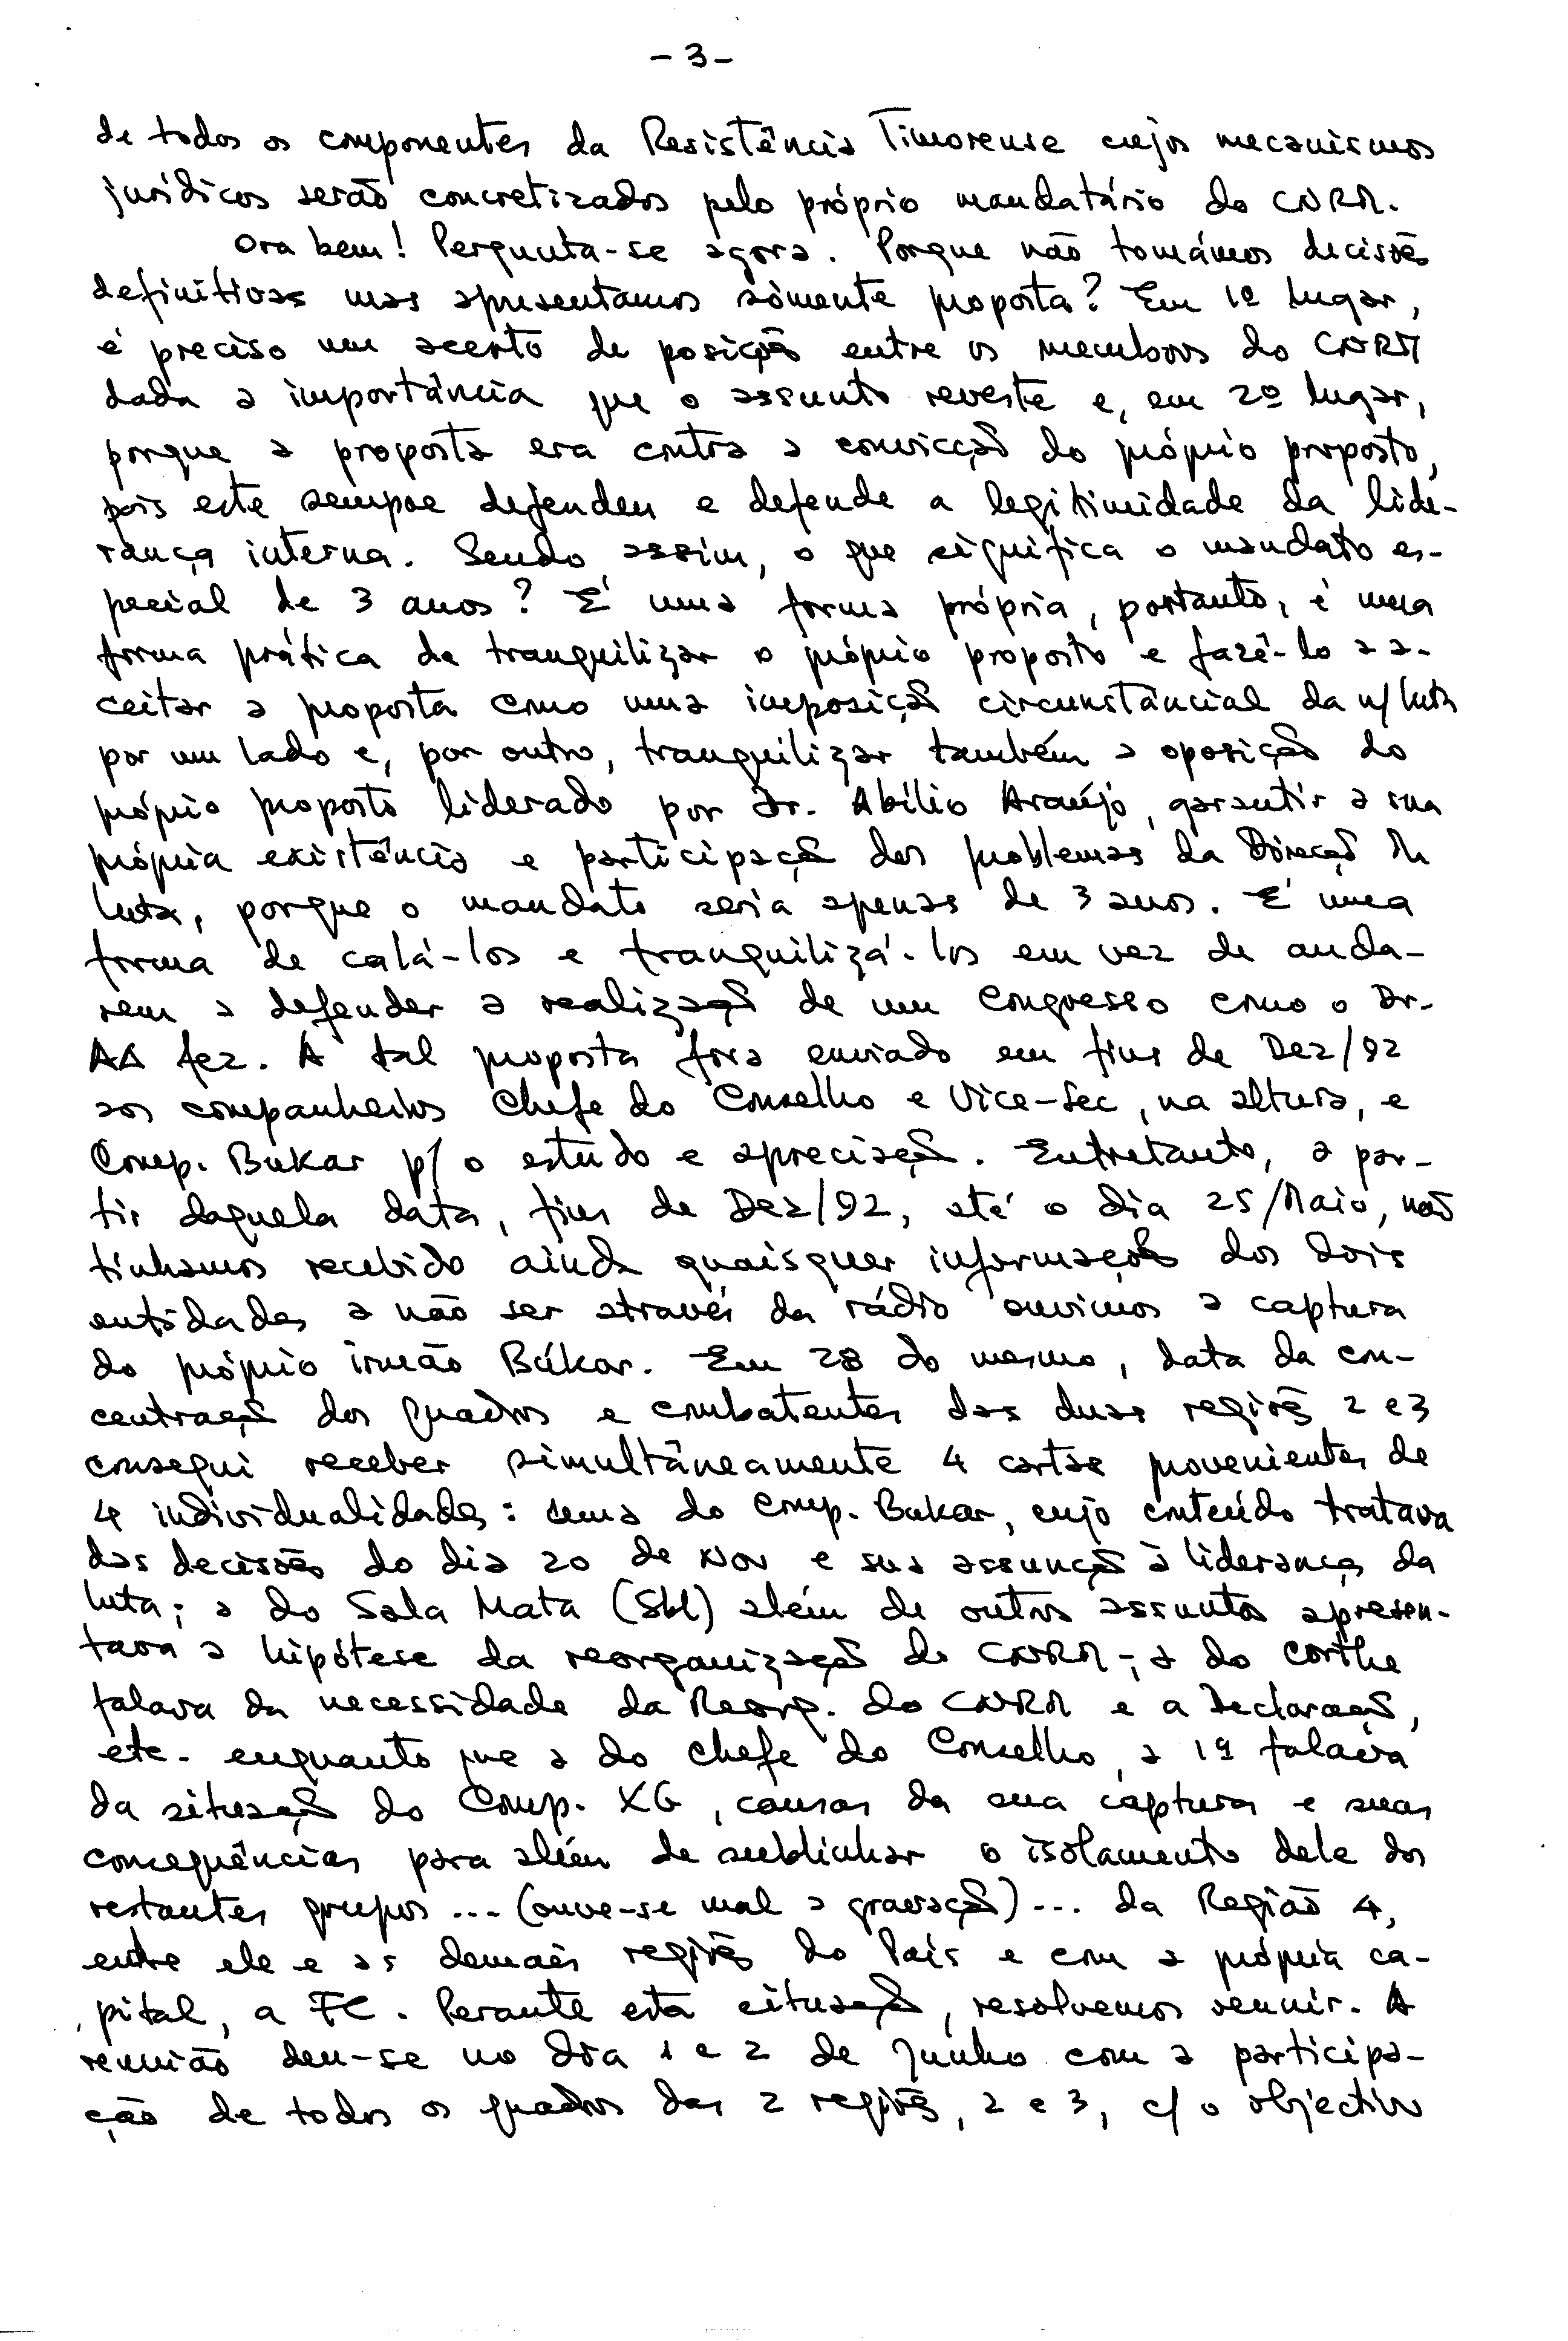 - 3 -
de todos os componentes da Resistência Timorense cujos mecanismos
jurídicos serão concretizados pelo próprio mandatário do CNRM.
Ora bem! Pergunta-se agora. Porque não tomámos decisões
definitivas mas apresentamos sòmente proposta? Em 1º lugar,
é preciso um acerto de posições entre os membros do CNRM
dada a importância que o assunto reveste e, em 2º lugar,
porque a proposta era contra a convicção do próprio proposto,
pois este sempre defendeu e defende a legitimidade da lide-
rança interna. Sendo assim, o que significa o mandato es-
pecial de 3 anos? É uma forma própria, portanto, é uma
forma prática de tranquilizar o próprio proposto e fazê-lo a a-
ceitar a proposta como uma imposição circunstâncial da n/ luta
por um lado e, por outro, tranquilizar também a oposição do
próprio proposto liderado por Dr. Abílio Araújo, garantir a sua
própria existência e participação dos problemas da Direcção da
luta, porque o mandato seria apenas de 3 anos. É uma
forma de calá-los e tranquilizá-los em vez de anda-
rem a defender a realização de um Congresso como o Dr.
AA fez. A tal proposta fora enviado em fins de Dez/92
aos companheiros Chefe do Conselho e Vice-Sec, na altura, e
Comp. Bukar p/ o estudo e apreciação. Entretanto, a par-
tir daquela data, fins de Dez/92, até o dia 25/Maio, não
tinhamos recebido ainda quaisquer informações dos dois
entidades a não ser através da rádio ouvimos a captura
do próprio irmão Búkar. Em 28 do mesmo, data da con-
centração dos quadros e combatentes das duas regiões 2 e 3
consegui receber simultâneamente 4 cartas provenientes de
4 individualidades: uma do Comp. Bukar, cujo conteúdo tratava
das decisões do dia 20 de Nov e sua assunção à liderança da
luta; a do Sala Mata (Sbl) além de outros assuntos apresen-
tava a hipótese da reorganização do CNRM; a do Corthe
falava da necessidade da Reorg. do CNRM e a Declaração,
etc. enquanto que a do Chefe do Conselho, a 1ª falava
da situação do Comp. XG, causas da sua captura e suas
consequências para além de sublinhar o isolamento dele dos
restantes grupos ... (ouve-se mal a gravação) ... da Região 4,
entre ele e as demais regiões do País e com a própria ca-
pital, a FC. Perante esta situação, resolvemos reunir. A
reunião deu-se no dia 1 e 2 de Junho com a participa-
ção de todos os quadros das 2 regiões, 2 e 3, c/ o objectivo